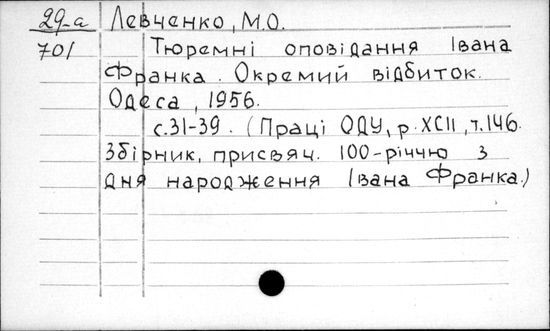 29-а Левченко, М.О.
701 Тюремні оповідання Івана
Франка. Окремий відбиток.
Одеса, 1956.
с.31-39. (Праці ОДУ, р. XCII, т.146.
Збірник, присвяч. 100-річчю з
дня народження Івана Франка.)